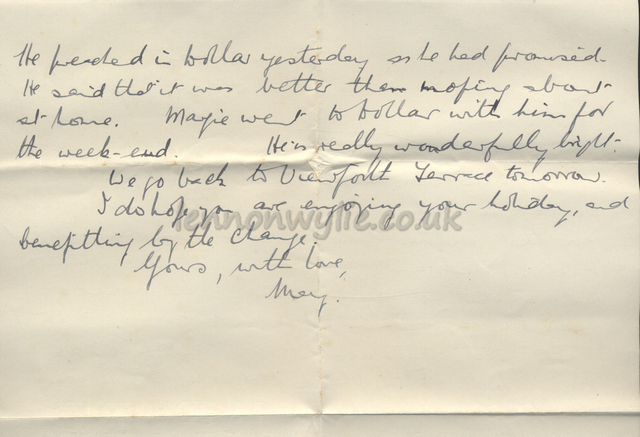 He preached in Dollar yesterday as he had promised.
He said that it was better than moping about
at home. Magie went to Dollar with him for
the week-end. He is really wonderfully bright.
We go back to Viewforth Terrace tomorrow.
I do hope you are enjoying your holiday, and
lennonwylie.co.uk
benefitting by the change.
Yours, with love,
May.